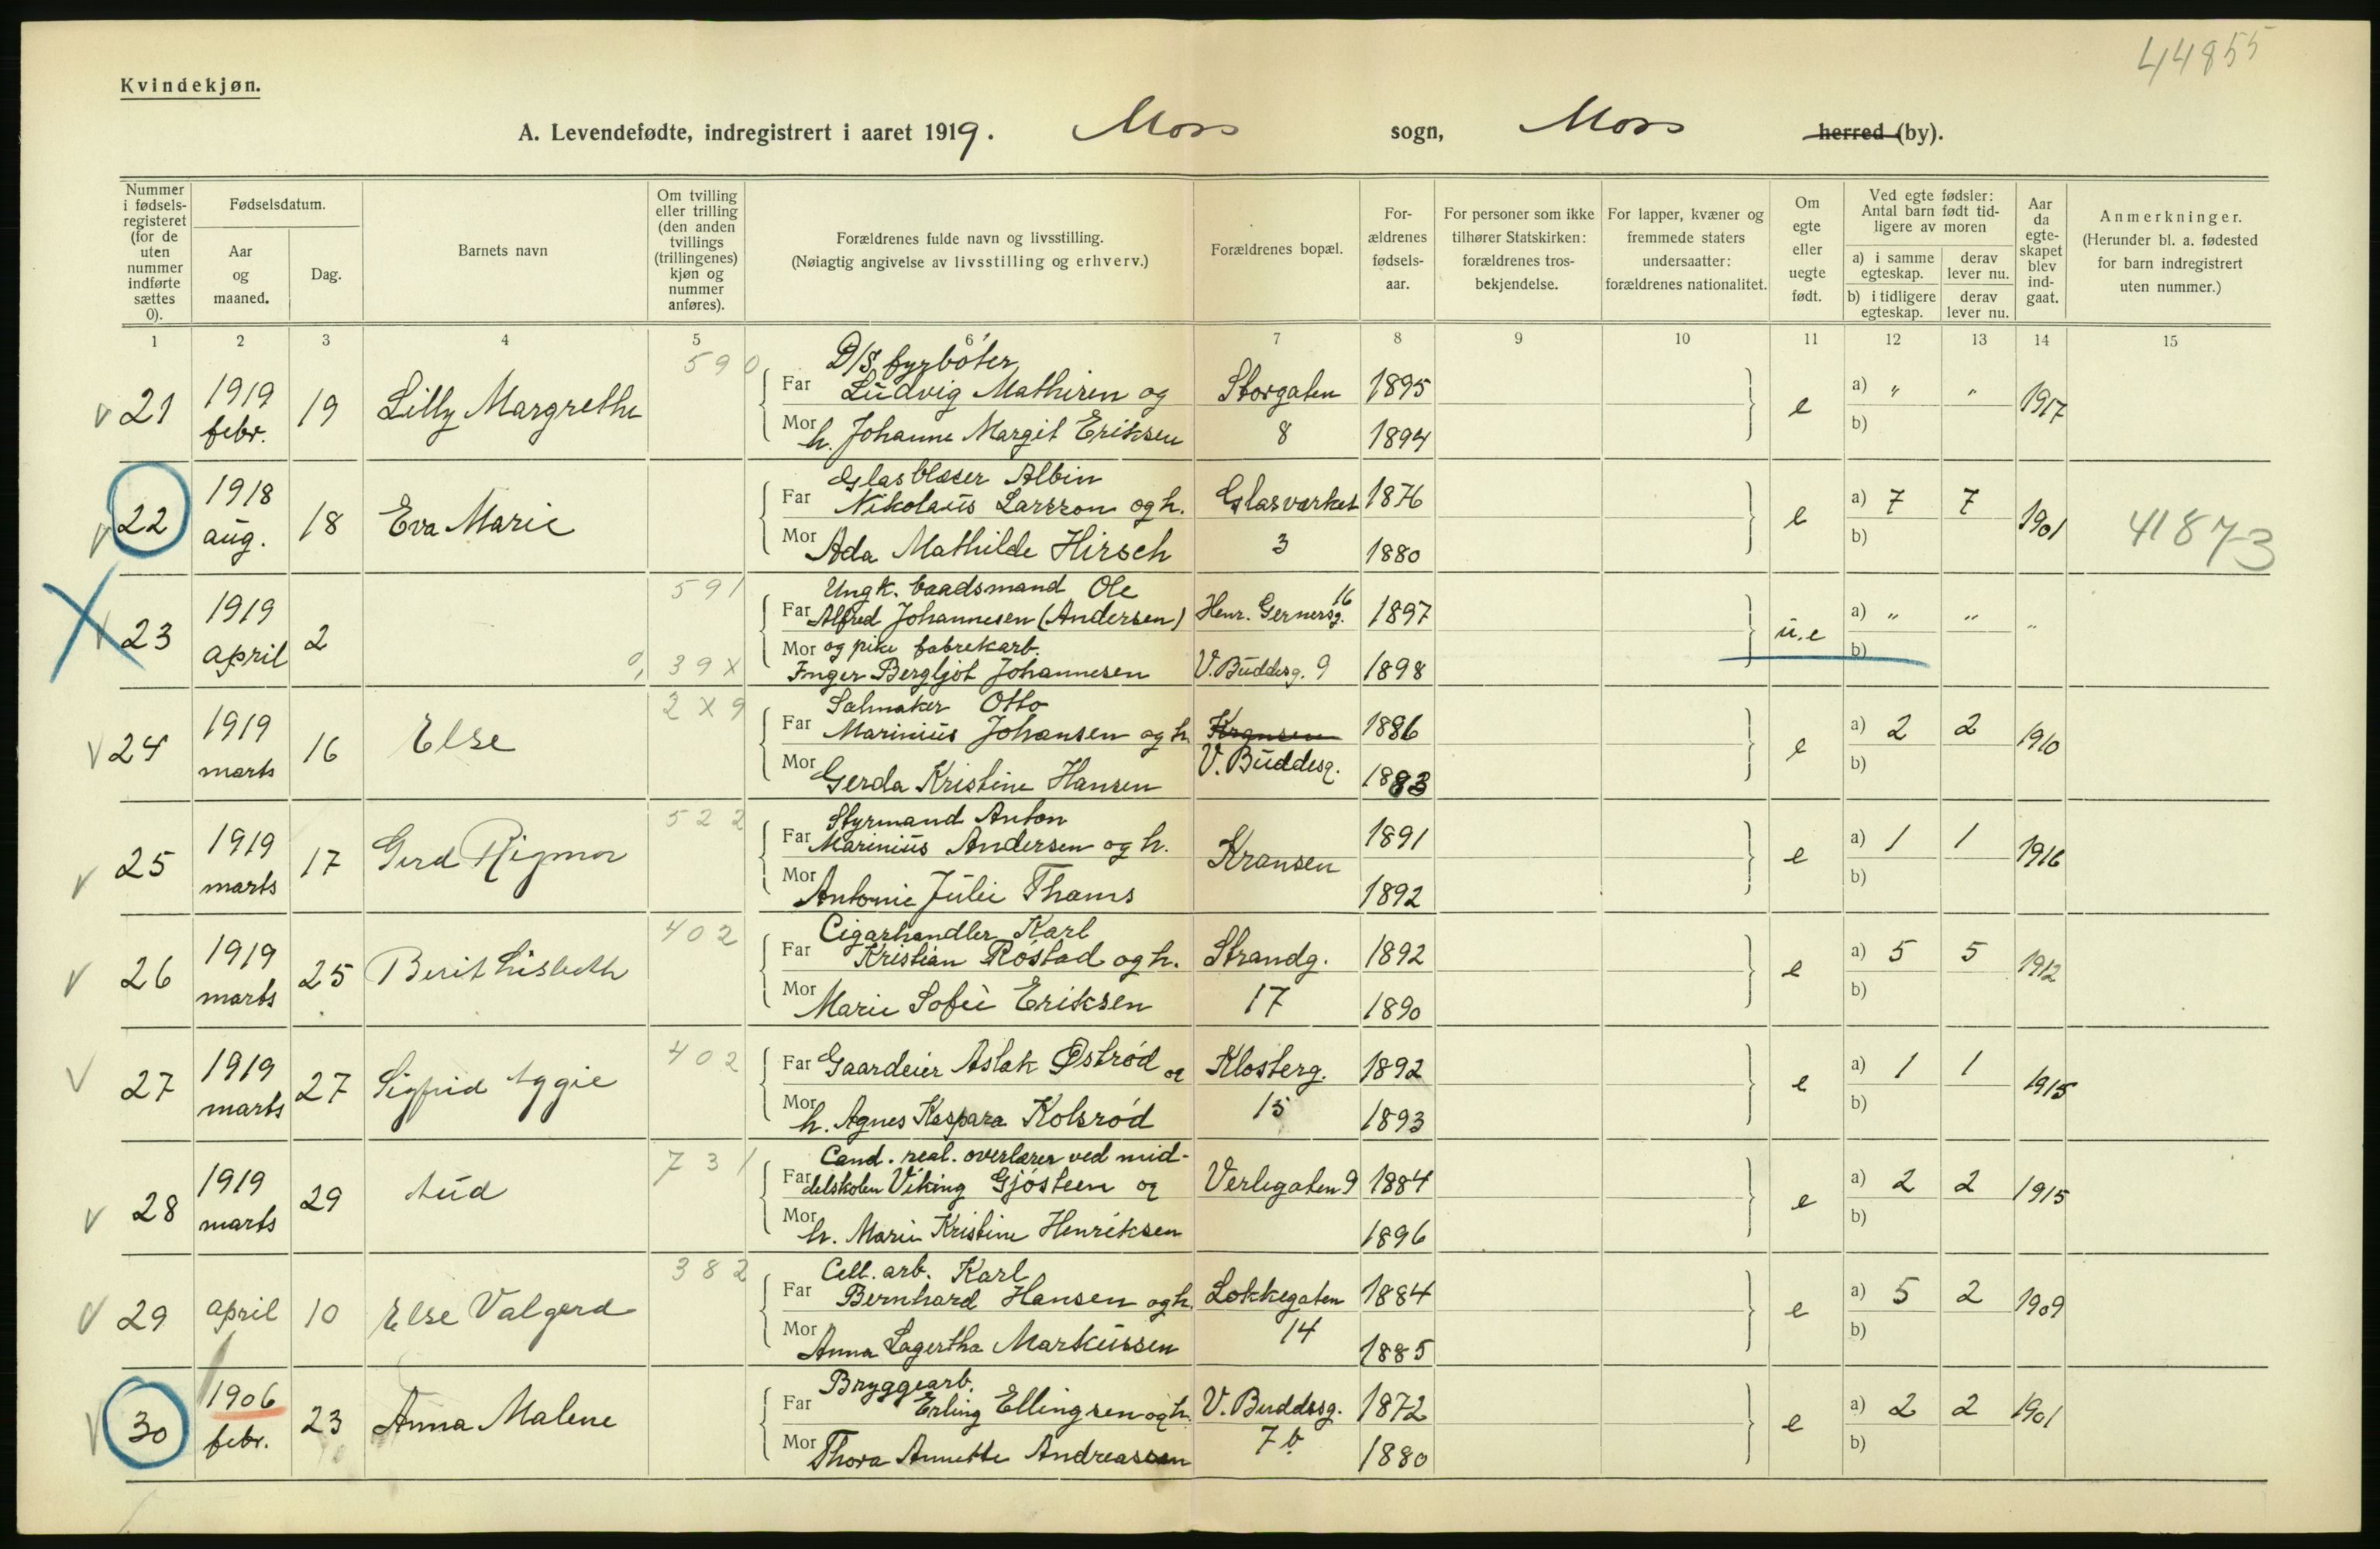 44855
Kvindekjøn.
A. Levendefødte, indregistrert i aaret 1919. Moss sogn, Moss herred (by).
Nummer i fødselsregisteret (for de uten nummer indførte sættes 0).
Fødselsdatum.
Aar og maaned.
Dag.
Barnets navn
Om tvilling eller trilling (den anden tvillings (trillingenes) kjøn og nummer anføres).
Forældrenes fulde navn og livsstilling.
(Nøiagtig angivelse av livsstilling og erhverv.)
Forældrenes bopæl.
For-ældrenes fødsels-aar.
For personer som ikke tilhører Statskirken: forældrenes tros-bekjendelse.
For lapper, kvæner og fremmede staters undersaatter: forældrenes nationalitet.
Om egte eller uegte født.
Ved egte fødsler: Antal barn født tid-ligere av moren
a) i samme egteskap. derav lever nu.
b) i tidligere egteskap. derav lever nu.
Aar da egte-skapet blev ind-gaat.
Anmerkninger.
(Herunder bl. a. fødested for barn indregistrert uten nummer.)
1 2 3 4 5 6 7 8 9 10 11 12 13 14 15
590 D/S fyrbøter
v 21 1919 febr. 19 Lilly Margrethe Far Ludvig Mathisen og Storgaten 1895 e a) " " 1917
Mor h. Johanne Margit Eriksen 8 1894 b)
Glasblæser Albin
v 22 1918 aug. 18 Eva Marie Far Nikolaus Larsson og h. Glasverket 1876 e a) 7 7 1901 41873
Mor Ada Mathilde Hirsch 3 1880 b)
591 Ungk. baadsmand Ole
v 23 1919 april 2 Far Alfred Johannesen (Andersen) Henr. Gernersg. 16 1897 u.e a) " " "
Mor og pike fabrekarb. b)
0, 39X Inger Bergljot Johannesen V. Buddesg. 9 1898
2X9 Salmaker Otto
v 24 1919 marts 16 Else Far Marinius Johansen og h. Kransen 1886 e a) 2 2 1910
Mor Gerda Kristine Hansen V. Buddesg. 1883 b)
522 Styrmand Anton
v 25 1919 marts 17 Gerd Rigmor Far Marinius Andersen og h. Kransen 1891 e a) 1 1 1916
Mor Antonie Julie Thams 1892 b)
402 Cigarhandler Karl
v 26 1919 marts 25 Berit Lisbeth Far Kristian Røstad og h. Strandg. 1892 e a) 5 5 1912
Mor Marie Sofie Eriksen 17 1890 b)
402
v 27 1919 marts 27 Sigfrid Aggie Far Gaardeier Aslak Østrød og Klosterg. 1892 e a) 1 1 1915
Mor h. Agnes Kaspara Kolsrød 15 1893 b)
731 Cand. real. overlærer ved mid-
v 28 1919 marts 29 Aud Far delskolen Viking Gjøsteen og Verlegaten 9 1884 e a) 2 2 1915
Mor h. Marie Kristine Henriksen 1896 b)
382 Cell. arb. Karl
v 29 april 10 Else Valgerd Far Bernhard Hansen og h. Løkkegaten 1884 e a) 5 2 1909
Mor Anna Lagertha Markussen 14 1885 b)
Bryggearb.
v 30 1906 febr. 23 Anna Malene Far Erling Ellingsen og h. V. Buddesg. 1872 e a) 2 2 1901
Mor Thora Annette Andreassen 7 b 1880 b)